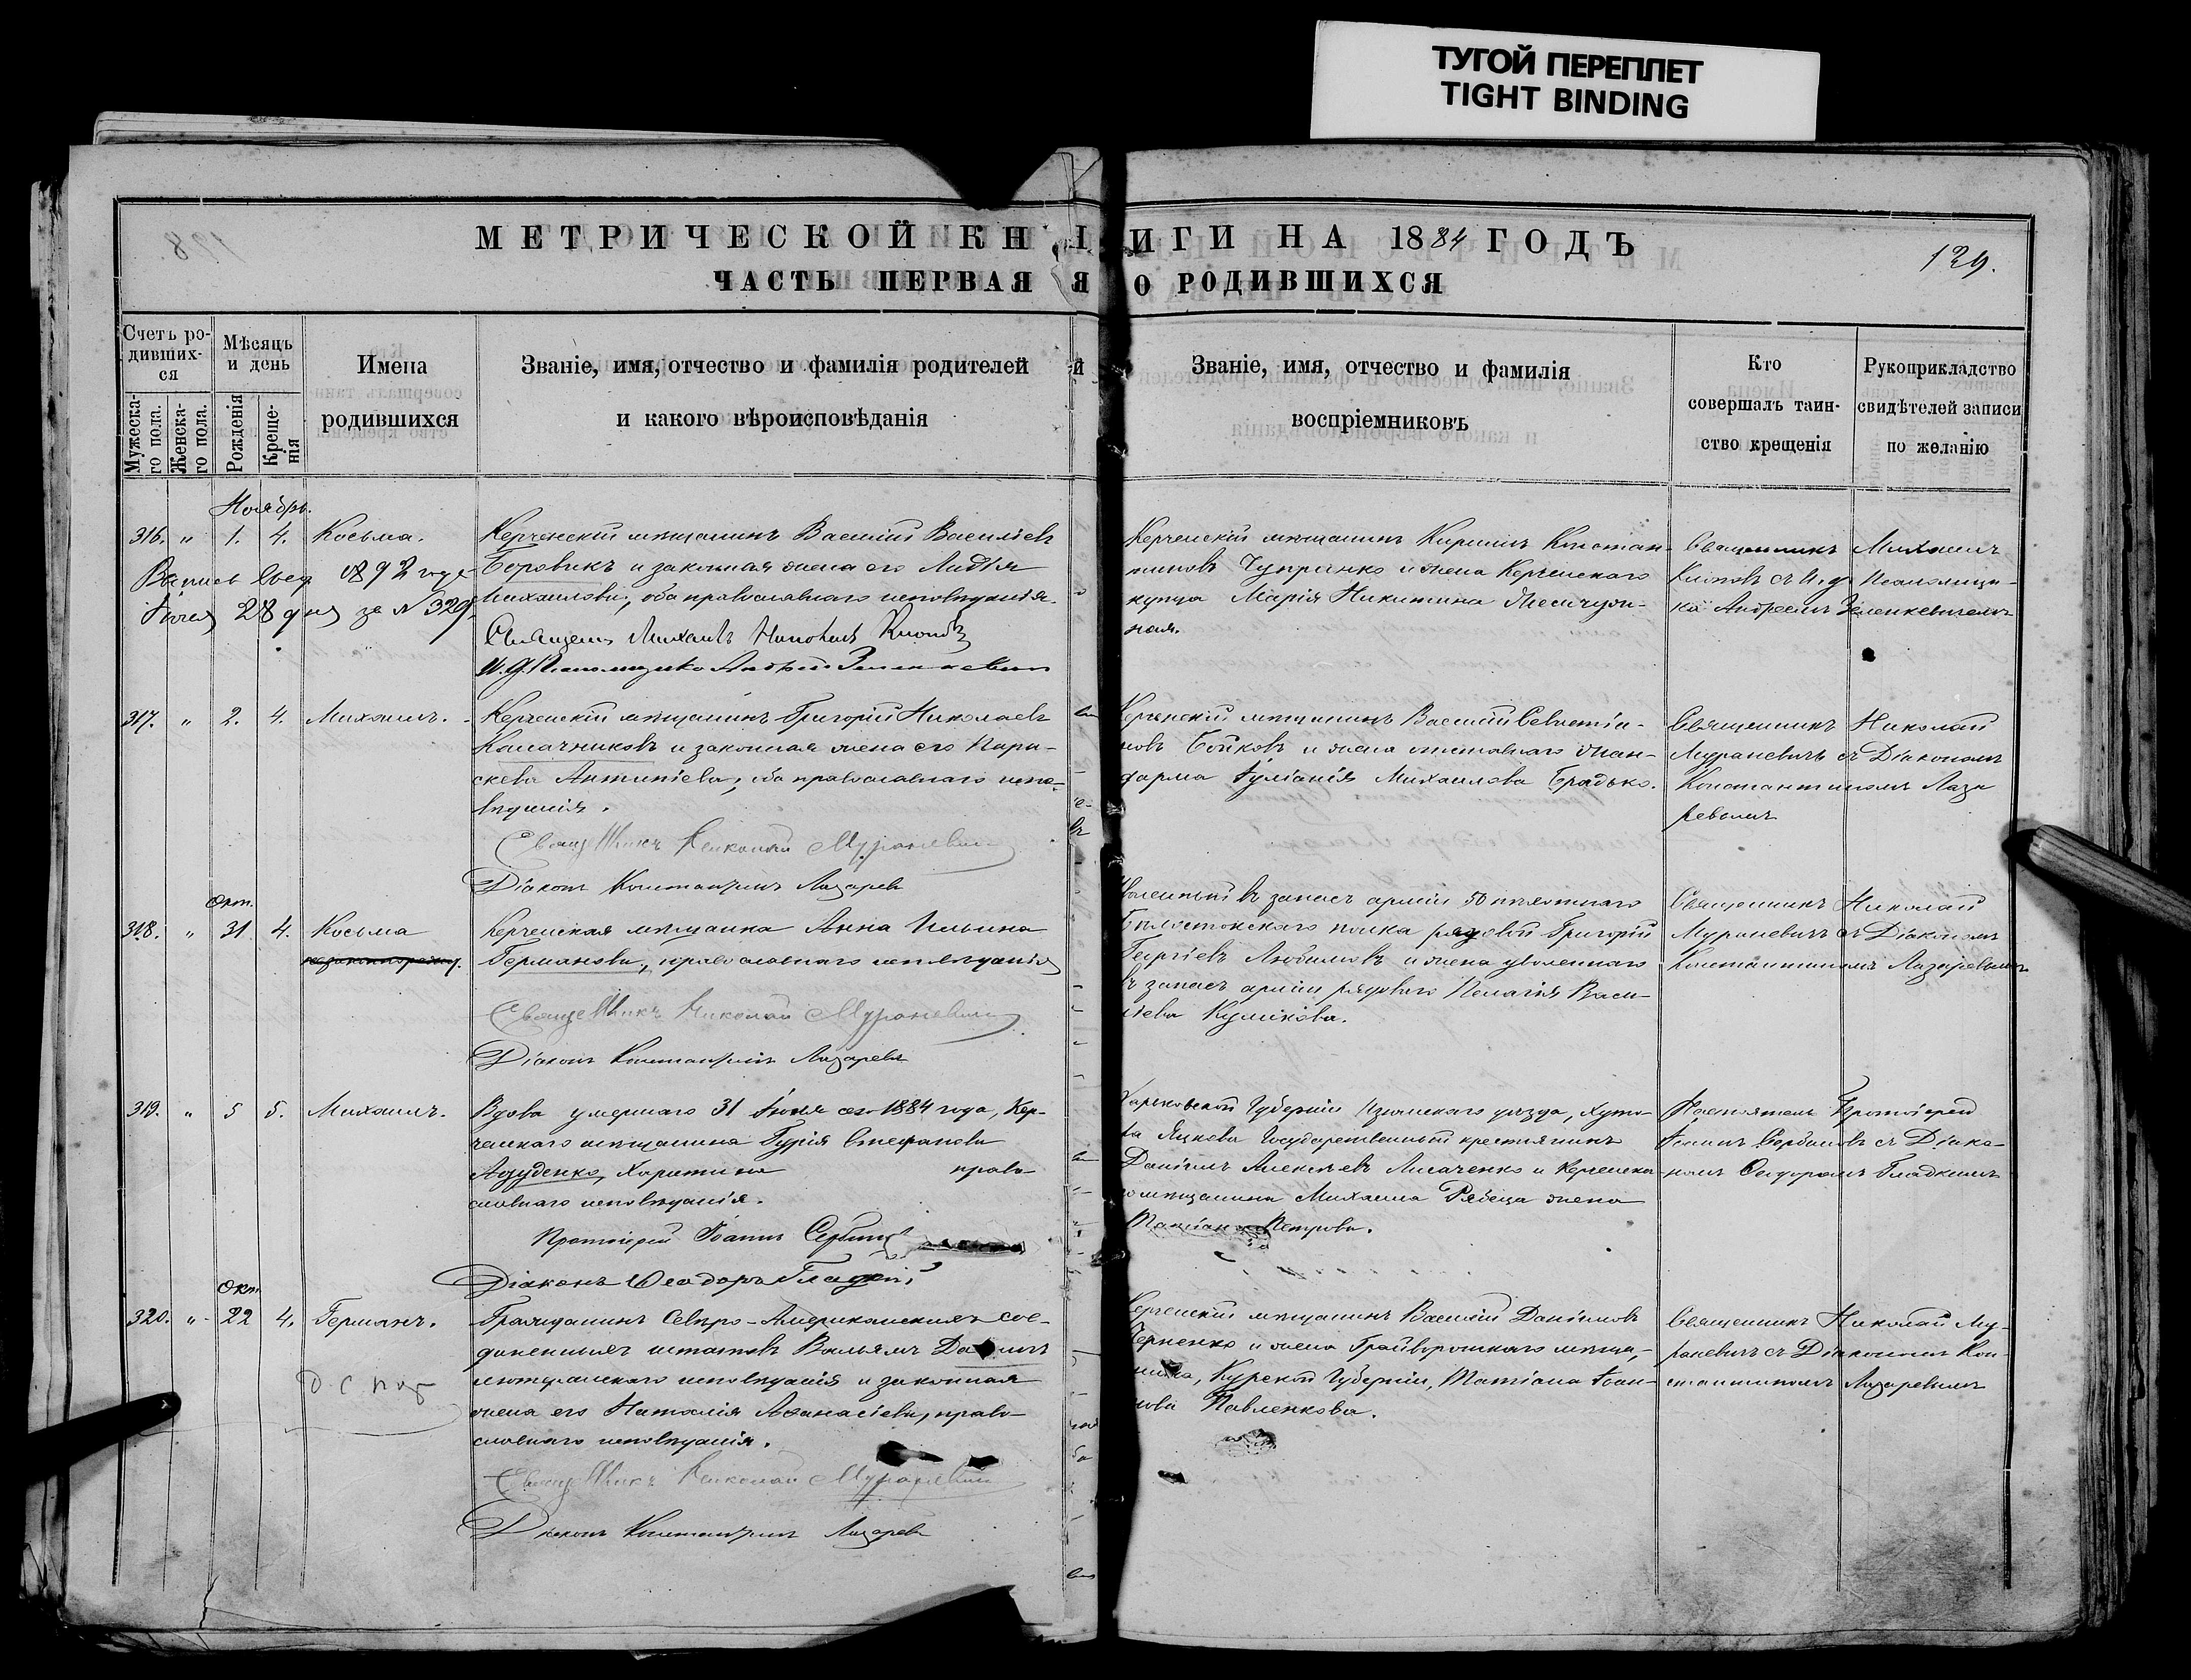 ТУГОЙ ПЕРЕПЛЕТ
TIGHT BINDING
МЕТРИЧЕСКОЙ КНИГИ НА 1884 ГОДЪ
129.
ЧАСТЬ ПЕРВАЯ О РОДИВШИХСЯ
Счетъ родившихся
Мужеска-го пола.
Женска-го пола.
Мѣсяцъ и день
Рожденія
Крещенія
Имена
родившихся
Званіе, имя, отчество и фамилія родителей
и какого вѣроисповѣданія
Званіе, имя, отчество и фамилія
воспріемниковъ
Кто
совершалъ таин-
ство крещенія
Рукоприкладство
свидѣтелей записи
по желанію
Ноябрь.
316. " 1. 4. Косьма.
1892 года
28 дня за N 329.
Керченскій мѣщанинъ Василій Васильевъ
Боровикъ и законная жена его Лидія
Михаилова, оба православнаго исповѣданія.
И.д. Псаломщика Андрей Зеленкевичъ
Керченскій мѣщанинъ Кириллъ Констан-
тиновъ и жена Керченскаго
купца Марія Никитина
ная.
Священникъ Михаилъ
съ и.д. Псаломщи-
ка Андреемъ Зеленкевичемъ
317. " 2. 4. Михаилъ.
Керченскій мѣщанинъ Григорій Николаевъ
Калачниковъ и законная жена его Пара-
скева Антипіева, оба православнаго испо-
вѣданія.
Священникъ Николай Мураневичъ
Діаконъ Константинъ Лазаревъ
Керченскій мѣщанинъ Василій Севастіа-
новъ Бойковъ и жена отставнаго жан-
дарма Іуліанія Михаилова Брадько.
Священникъ Николай
Мураневичъ съ Діакономъ
Константиномъ Лаза
ревымъ
Окт.
318. " 31 4. Косьма
незаконнорожд.
Керченская мѣщанка Анна Ильина
Германова, православнаго исповѣданія
Священникъ Николай Мураневичъ
Діаконъ Константинъ Лазаревъ
Уволенный въ запасъ арміи 50 пѣхотнаго
Бѣлостокскаго полка рядовой Григорій
Георгіевъ Любимовъ и жена уволеннаго
въ запасъ арміи рядоваго Пелагія Васи-
ліева Куликова.
Священникъ Николай
Мураневичъ съ Діакономъ
Константиномъ Лазаревымъ
319. " 5 5. Михаилъ.
Вдова умершаго 31 Іюля сего 1884 года, Кер-
ченскаго мѣщанина Гурія Стефанова
Авуденко, Харитина право-
славнаго исповѣданія.
Протоіерей Іоаннъ Сербиновъ
Діаконъ Ѳеодоръ Гладкій
Харьковской Губерніи Изюмскаго уѣзда, хуто-
ра Яцкова Государственный крестьянинъ
Даніилъ Алексѣевъ Лисаченко и Керченска-
го мѣщанина Михаила Рябеца жена
Татіана Петрова.
Настоятель Протоіерей
Іоаннъ Сербиновъ съ Діако-
номъ Ѳеодоромъ Гладкимъ
Окт.
320. " 22 4. Германъ.
Гражданинъ Сѣверо-Американскихъ Сое-
диненныхъ штатовъ Вильямъ
лютеранскаго исповѣданія и законная
жена его Наталія Аѳанасіева, право-
славнаго исповѣданія.
Священникъ Николай Мураневичъ
Діаконъ Константинъ Лазаревъ
Керченскій мѣщанинъ Василій Даніиловъ
Черненко и жена Грайворонскаго мѣща-
нина, Курской Губерніи, Татіана Іоан-
нова Павленкова.
Священникъ Николай Му-
раневичъ съ Діакономъ Кон-
стантиномъ Лазаревымъ